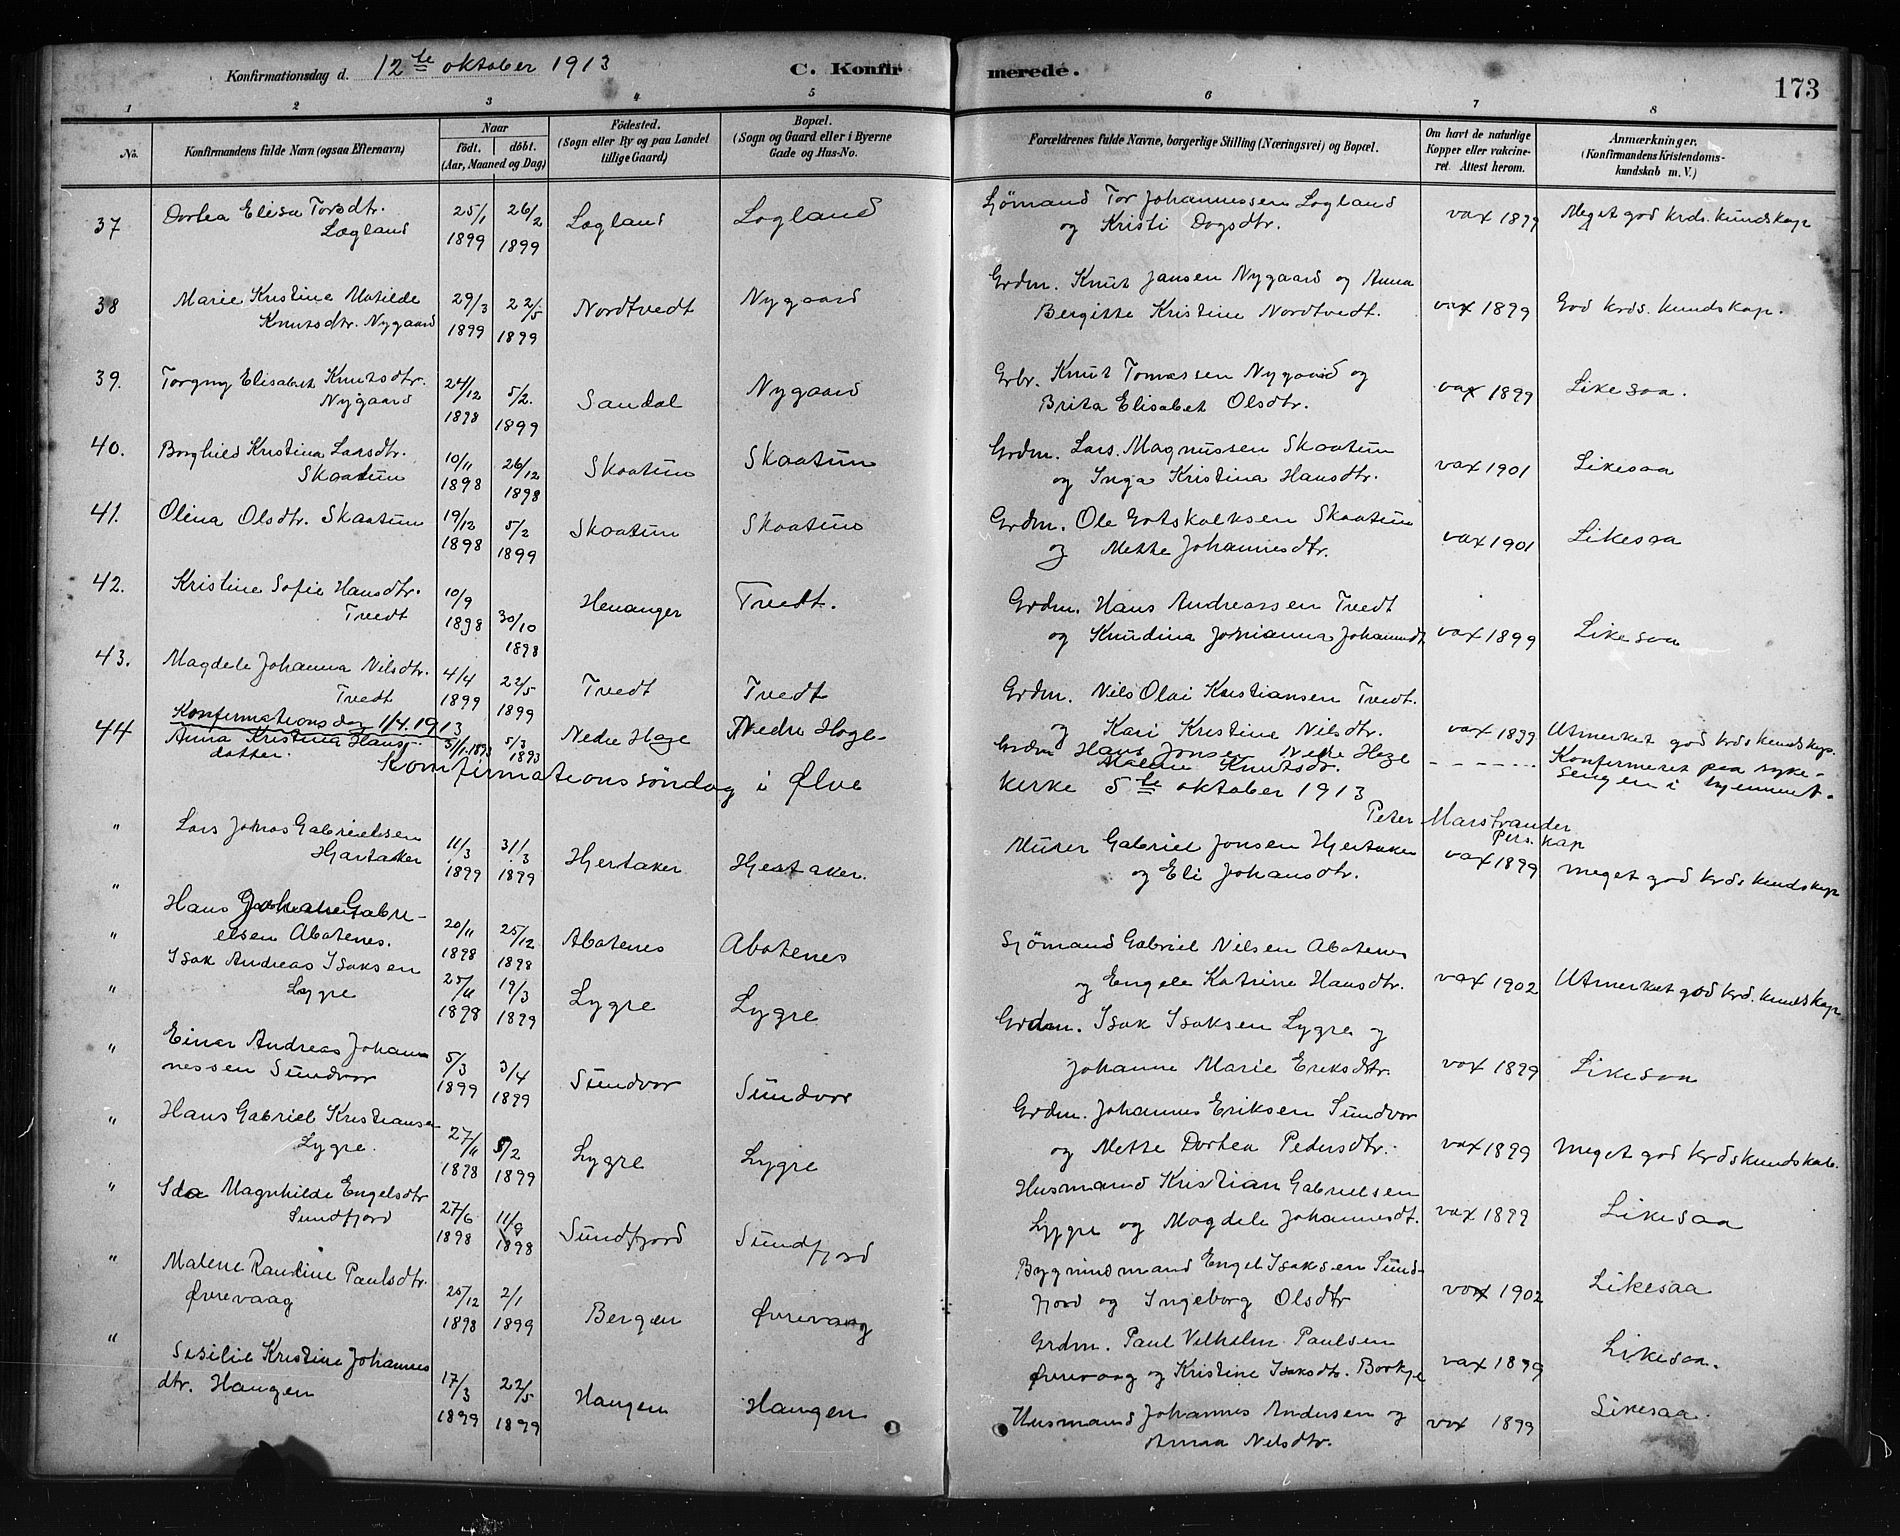 Konfirmationsdag d. 12te oktober 1913
C. Konfirmerede.
173
1 2 3 4 5 6 7 8
No.
Konfirmandens fulde Navn (ogsaa Efternavn)
Naar
født. døbt.
(Aar, Maaned og Dag)
Fødested.
(Sogn eller By og paa Landet
tillige Gaard)
Bopæl.
(Sogn og Gaard eller i Byerne
Gade og Hus-No.
Forældrenes fulde Navne, borgerlige Stilling (Næringsvei) og Bopæl.
Om havt de naturlige
Kopper eller vakcine-
ret. Attest herom.
Anmærkninger.
(Konfirmandens Kristendoms-
kundskab m. V.)
37 Dortea Elisa Torsdtr. 25/1 26/2 Løgland Løgland Sjömand Tor Johannessen Løgland vax 1899 Meget god krds. kundskap
Løgland 1899 1899 og Kristi Dagsdtr.
38 Marie Kristine Matilde 29/3 22/5 Nordtvedt Nygaard Grdm. Knut Jansen Nygaard og Anna
Knutsdtr. Nygaard 1899 1899 Bergitte Kristine Nordtvedt. vax 1899 God krds. kundskap.
39. Torgny Elisabet Knutsdtr. 24/12 5/2. Sandal Nygaard Gbr. Knut Tomassen Nygaard og vax 1899 Likesaa.
Nygaard 1898 1899 Brita Elisabet Olsdtr.
40. Borghild Kristina Larsdtr. 10/11 26/12 Skaatun Skaatun Grdm. Lars Magnussen Skaatun vax 1901 Likesaa
Skaatun 1898 1898 og Inga Kristina Hansdtr.
41. Olina Olsdtr. Skaatun 19/12 5/2 Skaatun Skaatun Grdm. Ole Gotskalksen Skaatun vax 1901 Likesaa
1898 1899 og Mette Johannesdtr.
42. Kristine Sofie Hansdtr. 10/9 30/10 Henanger Tvedt. Grdm. Hans Andreassen Tvedt
Tvedt 1898 1898 og Knudina Johanna Johannesdt vax 1899 Likesaa
43. Magdele Johanna Nilsdtr. 4/4 22/5 Tvedt Tvedt Grdm. Nils Olai Kristiansen Tvedt.
Tvedt 1899 1899 og Kari Kristine Nilsdtr. vax 1899 Utmerket god krdskundskap.
Konfirmationsdag 1/4. 1913
44 Anna Kristina Hans- 5/3 1893 Nedre Hage Nedre Hage- Grdm Hans Jonsen Nedre Hage Konfirmeret paa syke-
datter. Malene Knutsdr. sengen i hjemmet.
Konfirmationssøndag i Ølve kirke 5te oktober 1913
Peter Marstrander
Pers. kap
" Lars Johas Gabrielsen 11/3 31/3 Hjertaker Hjertaker. Murer Gabriel Jonsen Hjertaker vax 1899 meget god krds kundskap
Hjartaker 1899 1899 og Eli Johansdtr.
" Hans Gabri-
" elsen Abotenes. 20/11 25/12 Abotenes Abotenes Sjömand Gabriel Nilsen Abotenes
1898 1898 og Engele Katrine Hansdtr. vax 1902 Utmerket god krd. kundskap
" Isak Andreas Isaksen 19/3 Lygre Lygre Grdm. Isak Isaksen Lygre og
Lygre 1898 1899 Johanne Marie Eriksdtr. vax 1899 Likesaa
" Einar Andreas Johan- 5/3 3/4 Sundvor Sundvor Grdm. Johannes Eriksen Sundvor
nessen Sundvor 1899 1899 og Mette Dortea Pedersdtr. vax 1899 meget god krdskundskab.
" Hans Gabriel Kristiansen 27/11 5/2 Lygre Lygre Husmand Kristian Gabrielsen
Lygre. 1898 1899 Lygre og Magdele Johannesdt. vax 1899 Likesaa
" Ida Magnhilde Engelsdtr 27/6 11/9 Sundfjord Sundfjord Bygningsmand Engel Isaksen Sund-
Sundfjord 1898 1898 fjord og Ingeborg Olsdtr vax 1902 Likesaa
" Malene Raudine Paulsdtr. 25/12 2/1 Bergen Øvrevaag Grdm. Paul Vilhelm Paulsen
Øvrevaag 1898 1899 Øvrevaag og Kristine Isaksdtr. vax 1899 Likesaa.
" Sesilie Kristine Johannes 17/3 22/5 Haugen Haugen Husmand Johannes Andersen og vax 1899 Likesaa.
dtr. Haugen 1899 1899 Anna Nilsdtr.